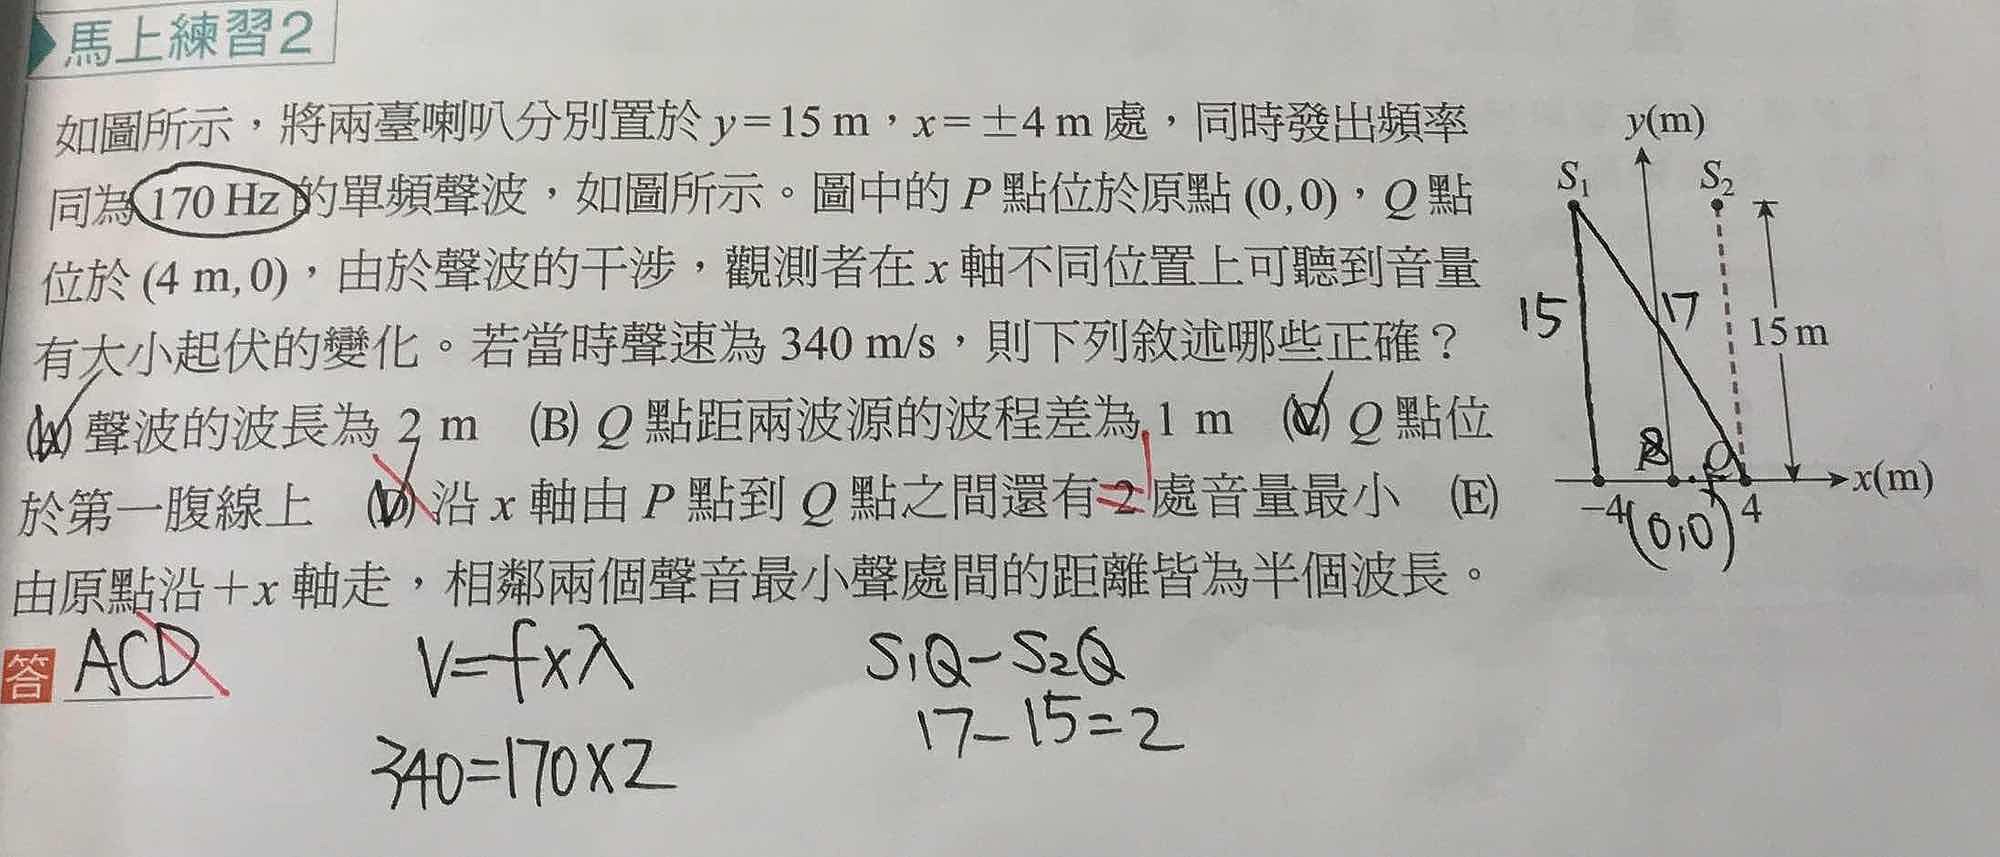 馬上練習2
如圖所示，將兩臺喇叭分別置於 y=15 m，x=±4 m 處，同時發出頻率
同為 170 Hz 的單頻聲波，如圖所示。圖中的 P 點位於原點 (0,0)，Q 點
位於 (4 m,0)，由於聲波的干涉，觀測者在 x 軸不同位置上可聽到音量
有大小起伏的變化。若當時聲速為 340 m/s，則下列敘述哪些正確？
(A) 聲波的波長為 2 m (B) Q 點距兩波源的波程差為 1 m (C) Q 點位
於第一腹線上 (D) 沿 x 軸由 P 點到 Q 點之間還有 2 處音量最小 (E)
由原點沿+x 軸走，相鄰兩個聲音最小聲處間的距離皆為半個波長。
答 ACD
V=f×λ
340=170×2
S₁Q−S₂Q
17−15=2
y(m)
S₁ S₂
15 17 15 m
P Q
x(m)
−4 (0,0) 4
1